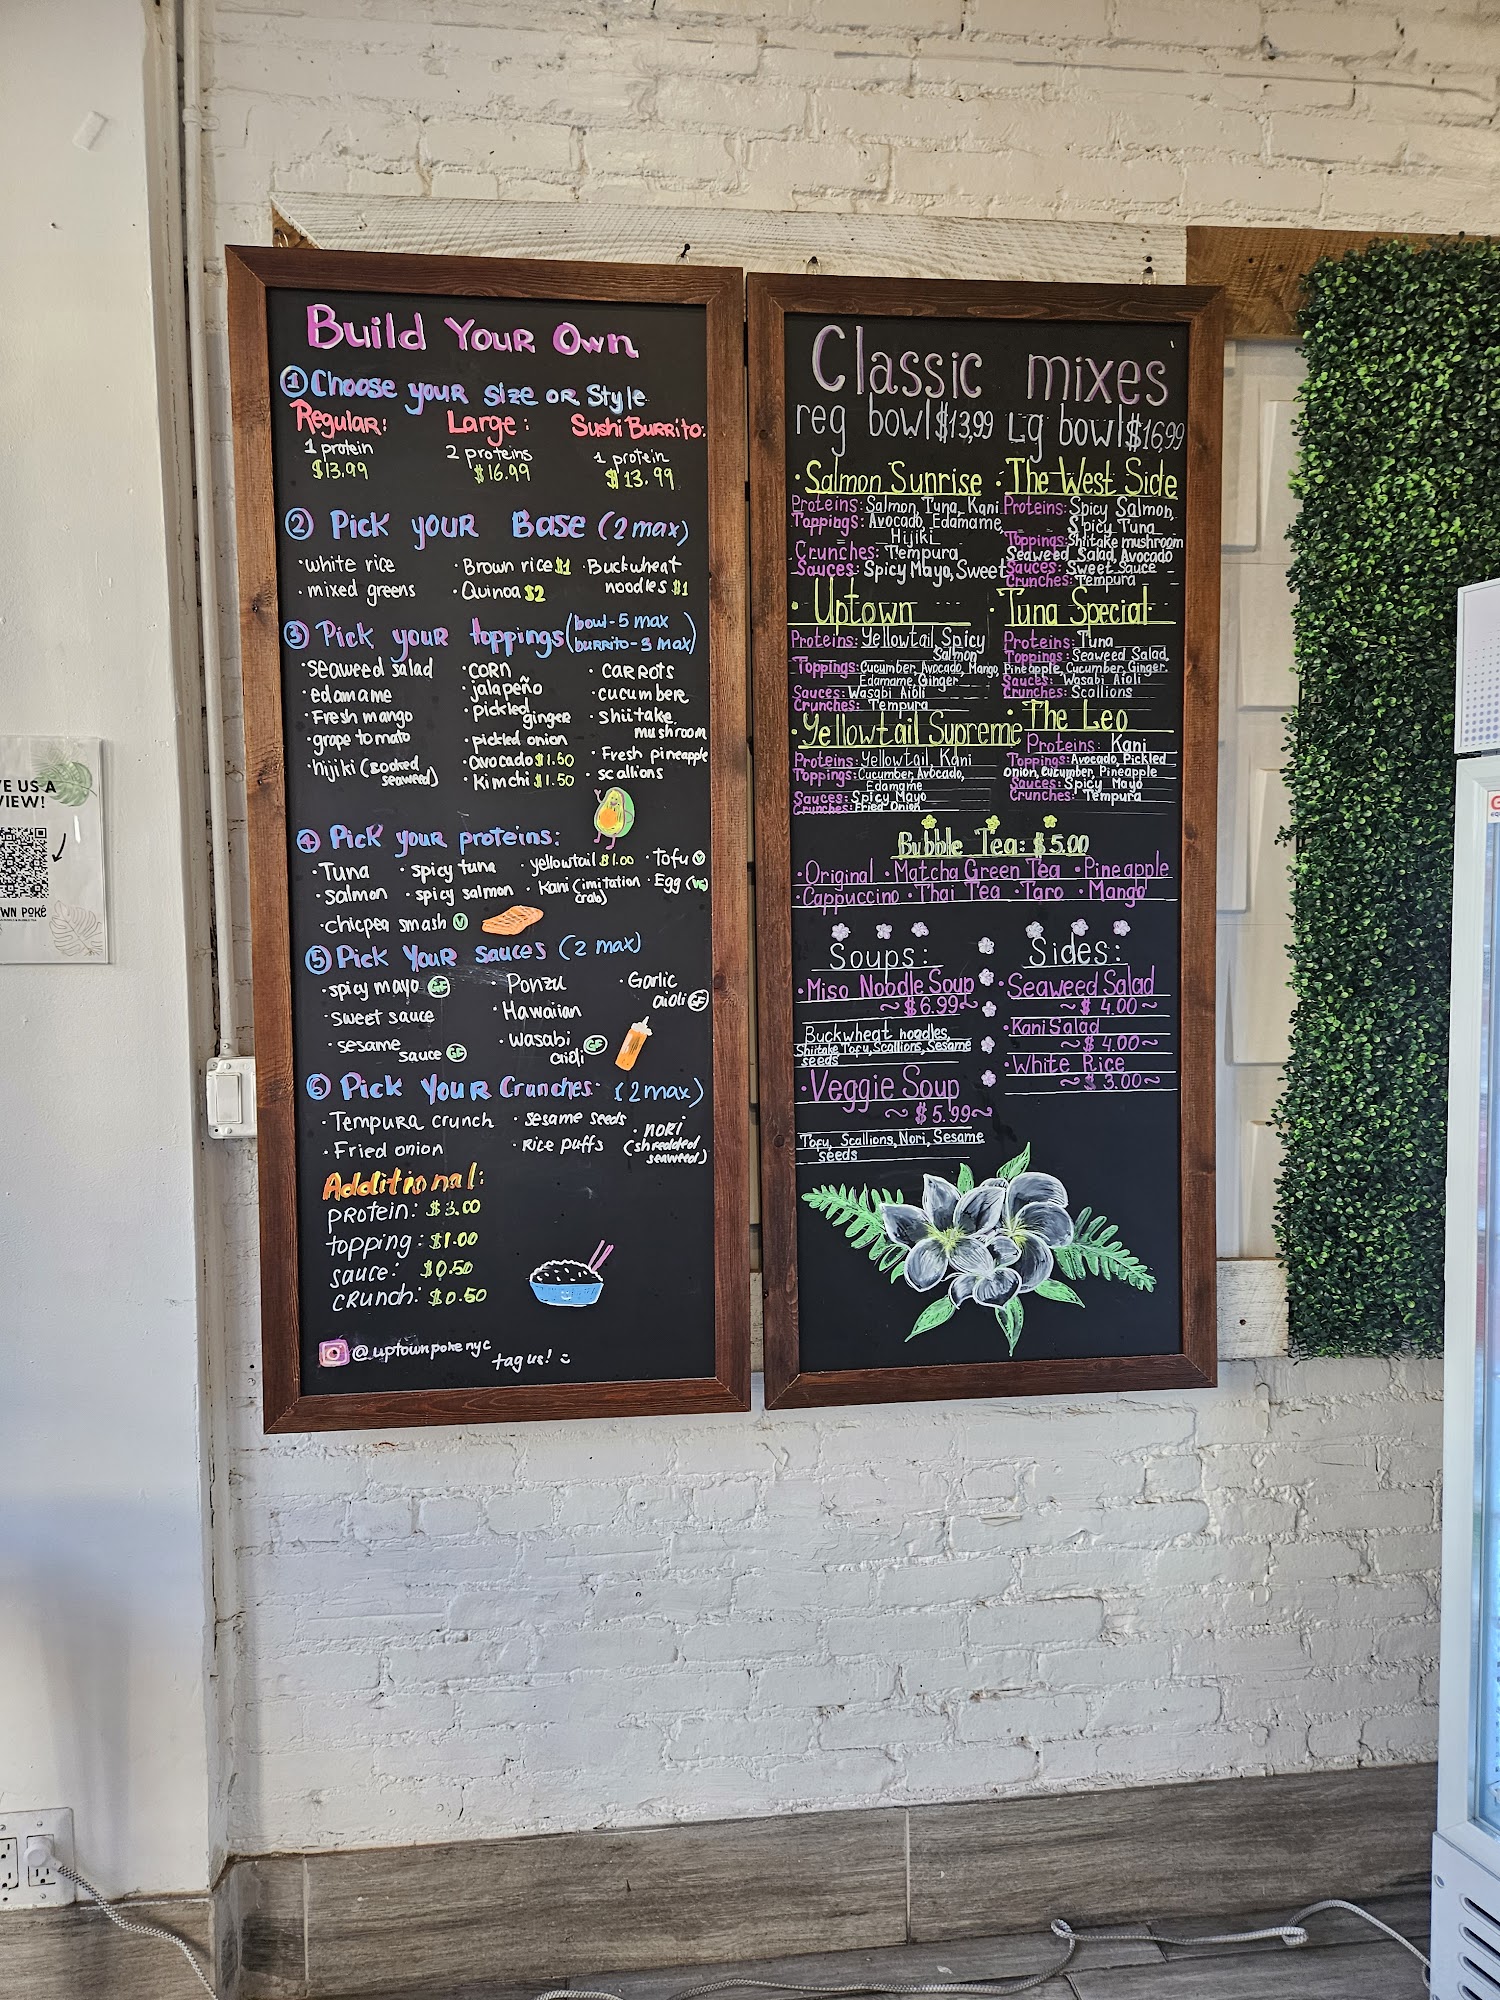 Build Your Own
① Choose your size or Style
Regular: Large: Sushi Burrito:
1 protein 2 proteins 1 protein
$13.99 $16.99 $13.99
② Pick your Base (2 max)
·white rice ·Brown rice $1 ·Buckwheat noodles $1
·mixed greens ·Quinoa $2
③ Pick your toppings (bowl-5 max
burrito-3 max)
·seaweed salad ·corn ·carrots
·edamame ·jalapeño ·cucumber
·Fresh mango ·pickled ginger ·shiitake mushroom
·grape tomato ·pickled onion ·Fresh pineapple
·hijiki (soaked seaweed) ·avocado $1.50 ·scallions
·Kimchi $1.50
④ Pick your proteins:
·Tuna ·spicy tuna ·yellowtail $1.00 ·Tofu Ⓥ
·salmon ·spicy salmon ·Kani (imitation crab) ·Egg (VG)
·chicpea smash Ⓥ
⑤ Pick Your sauces (2 max)
·spicy mayo GF ·Ponzu ·Garlic aioli GF
·sweet sauce ·Hawaiian
·sesame sauce GF ·wasabi aioli GF
⑥ Pick Your Crunches: (2 max)
·Tempura crunch ·sesame seeds ·nori (shredded seaweed)
·Fried onion ·Rice puffs
Additional:
protein: $3.00
topping: $1.00
sauce: $0.50
crunch: $0.50
@uptownpokenyc
tag us!
Classic mixes
reg bowl $13,99 Lg bowl $16,99
·Salmon Sunrise
Proteins: Salmon, Tuna, Kani
Toppings: Avocado, Edamame,
Hijiki
Crunches: Tempura
Sauces: Spicy Mayo, Sweet
·The West Side
Proteins: Spicy Salmon,
Spicy Tuna
Toppings: Shiitake mushroom
Seaweed Salad, Avocado
Sauces: Sweet Sauce
Crunches: Tempura
·Uptown
Proteins: Yellowtail, Spicy
Salmon
Toppings: Cucumber, Avocado, Mango,
Edamame, Ginger
Sauces: Wasabi Aioli
Crunches: Tempura
·Tuna Special
Proteins: Tuna
Toppings: Seaweed Salad,
Pineapple, Cucumber, Ginger
Sauces: Wasabi Aioli
Crunches: Scallions
·Yellowtail Supreme
Proteins: Yellowtail, Kani
Toppings: Cucumber, Avocado,
Edamame
Sauces: Spicy Mayo
Crunches: Fried Onion
·The Leo
Proteins: Kani
Toppings: Avocado, Pickled
Onion, Cucumber, Pineapple
Sauces: Spicy Mayo
Crunches: Tempura
Bubble Tea: $5.00
·Original ·Matcha Green Tea ·Pineapple
·Cappuccino ·Thai Tea ·Taro ·Mango
Soups:
·Miso Noodle Soup
~$6.99~
Buckwheat noodles,
Shiitake, Tofu, Scallions, Sesame
seeds
·Veggie Soup
~$5.99~
Tofu, Scallions, Nori, Sesame
seeds
Sides:
·Seaweed Salad
~$4.00~
·Kani Salad
~$4.00~
·White Rice
~$3.00~
VE US A
VIEW!
WN POKÉ